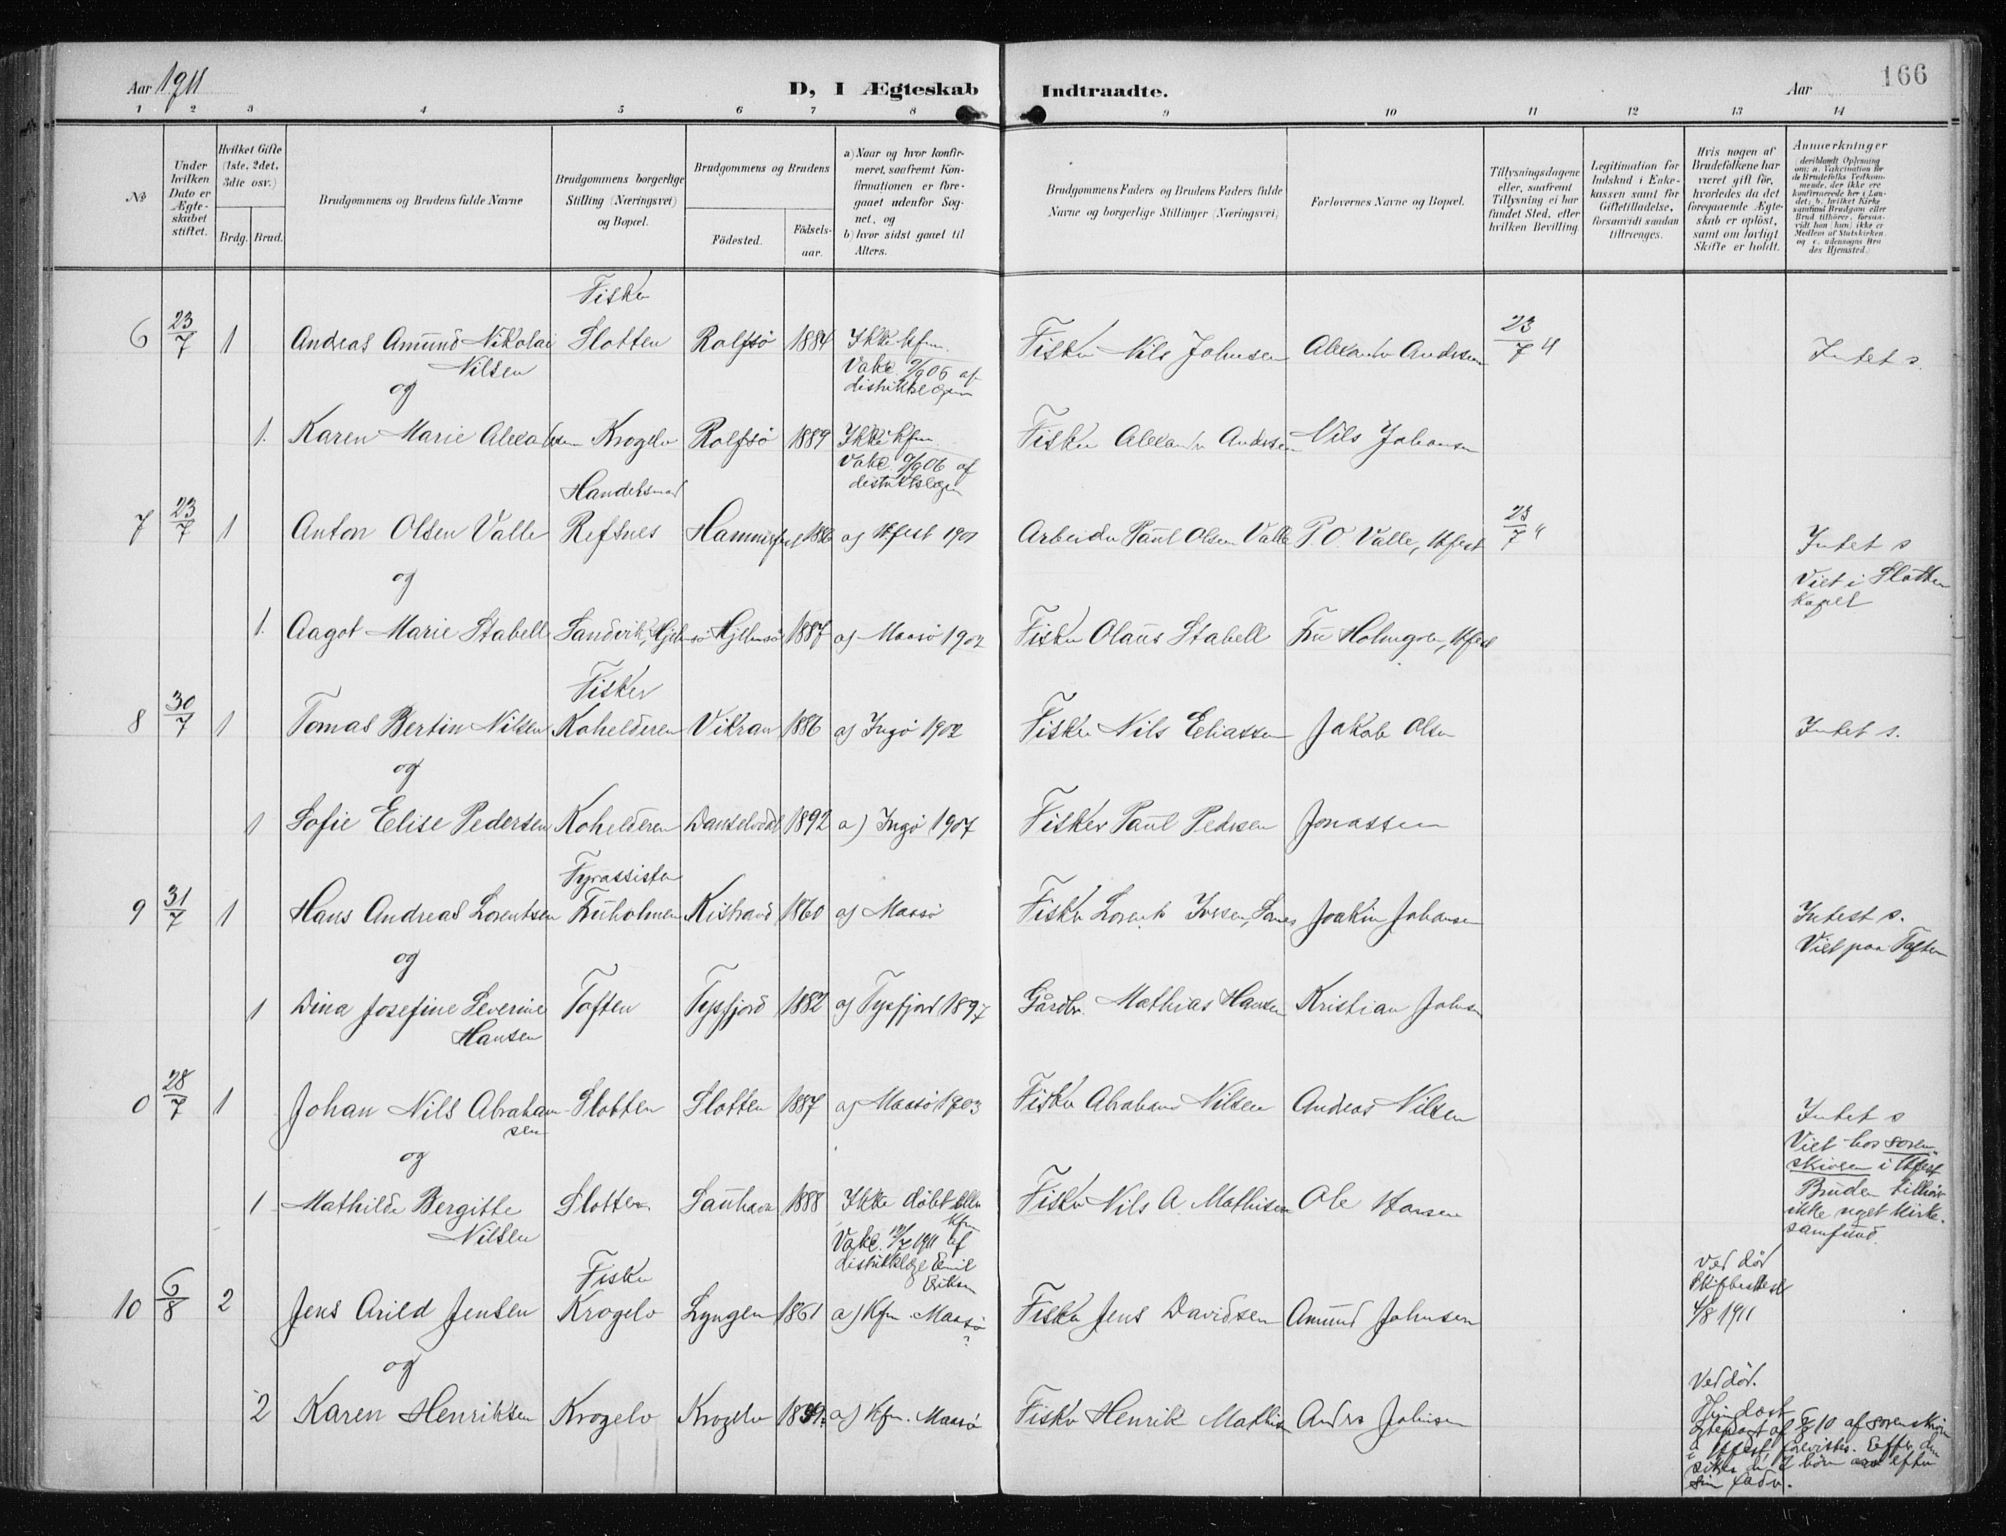 Aar 1911
D, I Ægteskab Indtraadte.
Aar
166
1 2 3 4 5 6 7 8 9 10 11 12 13 14
No
Under hvilken Dato er Ægteskabet stiftet.
Hvilket Gifte (1ste, 2det, 3die osv.)
Brdg. Brud.
Brudgommens og Brudens fulde Navne
Brudgommens borgerlige Stilling (Næringsvei) og Bopæl.
Brudgommens og Brudens
Födested. Födselsaar.
a) Naar og hvor konfirmeret, saafremt Konfirmationen er foregaaet udenfor Sognet, og
b) hvor sidst gaaet til Alters.
Brudgommens Faders og Brudens Faders fulde Navne og borgerlige Stillinger (Næringsvei)
Forlovernes Navne og Bopæl.
Tillysningsdagene eller, saafremt Tillysning ei har fundet Sted, efter hvilken Bevilling.
Legitimation for Indskud i Enkekassen samt for Giftetilladelse, forsaavidt saadan tiltrænges.
Hvis nogen af Brudefolkene har været gift før, hvorledes da det foregaaende Ægteskab er oplöst, samt om lovligt Skifte er holdt.
Anmerkninger
Fisker
6 23/7 1 Andreas Amund Nikolai Slotten Rolfsö 1884 Ikke kfm. Fisker Nils Johnsen Alexander Andersen 23/7 11 Intet s.
Nilsen Vakc. 9/9 06 af
og distriktslægen
1. Karen Marie Alexandersen Krogelv Rolfsö 1889 Ikke kfm. Fisker Alexander Andersen Nils Johansen
Vakc. 9/9 06 af
Handelsmand distriktslægen
7 23/7 1 Anton Olsen Valle Refsnes Hammerfest 1886 a) Hfest 1901 Arbeider Paul Olsen Valle P. O. Valle, Hfest 23/7 " Intet s
og Viet i Slotten
Kapel
1. Aagot Marie Stabell Sandvik, Hjelmsö Hjelmsö 1887 a) Maasö 1902 Fisker Olaus Stabell Fru Holmgren, Hfest
Fisker
8 30/7 1 Tomas Bertin Nilsen Kohelderen Vikran 1886 a) Ingö 1902 Fisker Nils Eliassen Jakob Olsen Intet s.
og
1 Sofie Elise Pedersen Kohelderen 1892 a) Ingö 1907 Fisker Paul Pedersen Jonassen
Fyrassistent
9 31/7 1 Hans Andreas Lorentsen Fruholmen Kistrand 1860 a) Maasö Fisker Lorents Iversen, Joakim Johansen Intet s.
og Viet paa Toften
1 Dina Josefine Severine Toften Tysfjord 1882 a) Tysfjord 1897 Gårdbr. Mathias Hansen Kristian Johnsen
Hansen
0 28/7 1 Johan Nils Abraham Slotten Slotten 1887 a) Maasö 1903 Fisker Abraham Nilsen Andreas Nilsen Intet s
sen Viet hos soren
og skiven i Hfest
1 Mathilde Bergitte Slotten Sauhavn 1888 Ikke döbt eller Fisker Nils A. Mathisen Ole Hansen Bruden tilhör
Nilsen kfm ikke noget kirke-
Vakc. 12/7 1911 af samfund.
Fisker distriktslæge Emil Eriksen Ved död
10 6/8 2 Jens Arild Jensen Krogelv Lyngen 1861 a) Kfm. Maasö ? Fisker Jens Davidsen Amund Johnsen Skifteattest
4/8 1911
og Ved död.
2 Karen Henriksen Krogelv Krogelv a) Kfm. Maasö Fisker Henrik Mathisen Anders Johnsen
af sorenskriv
i Hfest, forevistes. Efter den
sitter de 2 börn efter
sin fader.